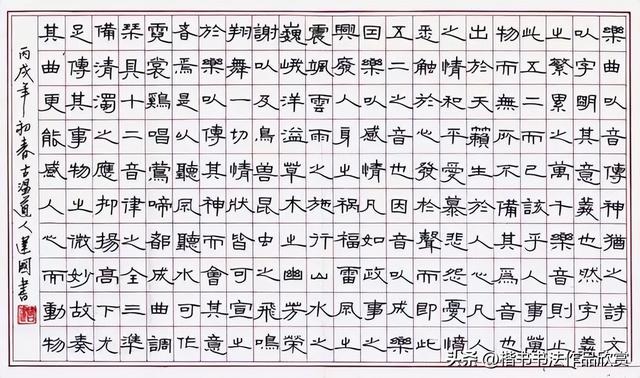 樂曲以音傳神猶之詩文
以字明其意義也然字義
之繁累之萬千樂音則止
此五二而已該乎人事萬
物而無所不備其為音也
出於天籟生於人心凡人
之情和平愛慕悲怨憂憤
悉觸於心發於聲而即此
五二之音也因音以成樂
因樂以感情凡如政事之
興廢人身之禍福雷風之
震颯雲雨之施行山水之
巍峨洋溢草木之幽芳榮
謝以及鳥獸昆虫之飛鳴
翔舞一切情狀皆可宣之
於樂以傳其神而會其意
者焉是以聽風聽水可作
霓裳鷄唱鶯啼都成曲調
琴具十二音律之全三準
備清濁之應抑揚高下尤
足傳其事物之微妙故奏
其曲更能感人心而動物
丙戌年初春古溫道人建國書
头条@楷书书法作品欣赏